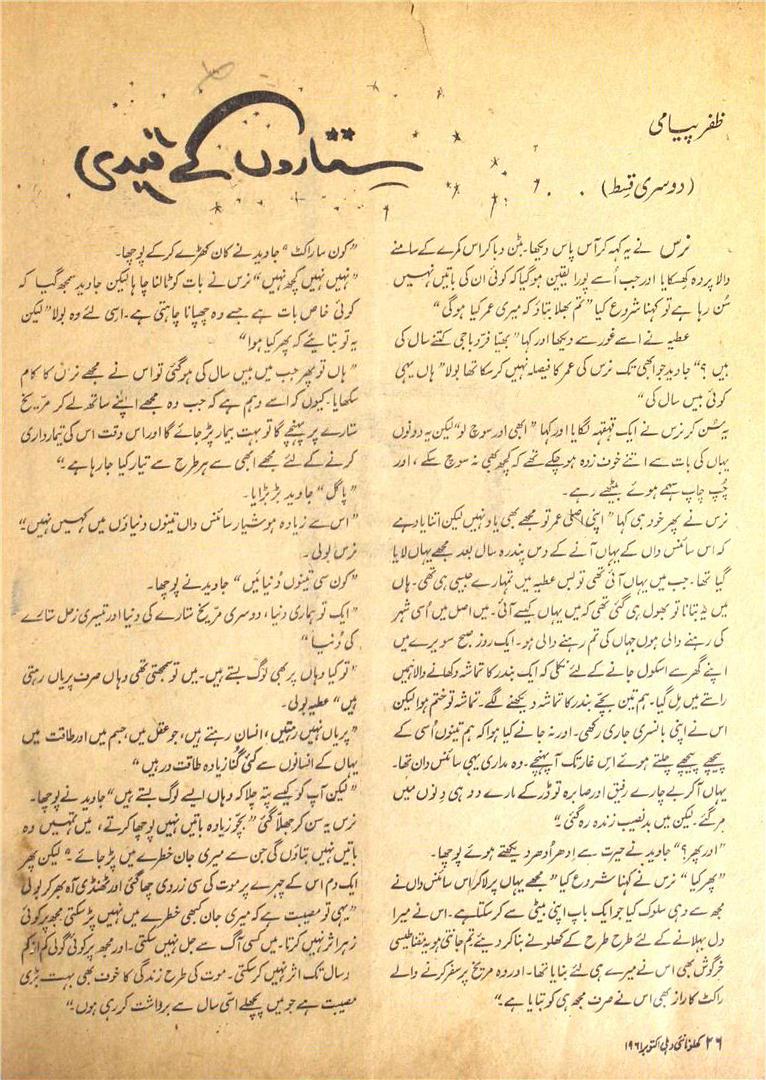 ظفر پیامی
ستاروں کے قیدی
(دوسری قسط)
نرس نے یہ کہہ کر آس پاس دیکھا۔ بٹن دبا کر اس کمرے کے سامنے
والا پردہ کھسکایا اور جب اُسے پورا یقین ہو گیا کہ کوئی ان کی باتیں نہیں
سُن رہا ہے تو کہنا شروع کیا "تم بھلا بتاؤ کہ میری عمر کیا ہوگی"
عطیہ نے اسے غور سے دیکھا اور کہا "بھیّا فردوا جی کتنے سال کی
ہیں؟" جاوید جو ابھی تک نرس کی عمر کا فیصلہ نہیں کر سکا تھا بولا "ہاں یہی
کوئی بیس سال کی"
یہ سُن کر نرس نے ایک قہقہہ لگایا اور کہا "ابھی اور سوچ لو" لیکن یہ دونوں
یہاں کی بات سے اتنے خوف زدہ ہو چکے تھے کہ کچھ بھی نہ سوچ سکے، اور
چُپ چاپ سہمے ہوئے بیٹھے رہے۔
نرس نے پھر خود ہی کہا "اپنی اصلی عمر تو مجھے بھی یاد نہیں لیکن اتنا یاد ہے
کہ اس سائنس داں کے یہاں آنے کے دس پندرہ سال بعد مجھے یہاں لایا
گیا تھا۔ جب میں یہاں آئی تھی تو بس عطیہ میں تمہارے جیسی ہی تھی۔ ہاں
میں یہ بتانا تو بھول ہی گئی تھی کہ میں یہاں کیسے آئی۔ میں اصل میں اُسی شہر
کی رہنے والی ہوں جہاں کی تم رہنے والی ہو۔ ایک روز صبح سویرے میں
اپنے گھر سے اسکول جانے کے لئے نکلی کہ ایک بندر کا تماشہ دکھانے والا ہمیں
راستے میں مل گیا۔ ہم تین بچّے بندر کا تماشہ دیکھنے لگے۔ تماشہ تو ختم ہوا لیکن
اس نے اپنی بانسری جاری رکھی۔ اور نہ جانے کیا ہوا کہ ہم تینوں اُسی کے
پیچھے پیچھے چلتے ہوئے اس غار تک آ پہنچے۔ وہ مداری یہی سائنس دان تھا۔
یہاں آ کر بے چارے رفیق اور صابرہ تو ڈر کے مارے دو ہی دنوں میں
مر گئے۔ لیکن میں بد نصیب زندہ رہ گئی۔"
"اور پھر؟" جاوید نے حیرت سے اِدھر اُدھر دیکھتے ہوئے پوچھا۔
"پھر کیا" نرس نے کہنا شروع کیا "مجھے یہاں پر لا کر اس سائنس داں نے
مجھ سے وہی سلوک کیا جو ایک باپ اپنی بیٹی سے کر سکتا ہے۔ اس نے میرا
دل بہلانے کے لئے طرح طرح کے کھلونے بنا کر دیئے تم جانتی ہو یہ مقناطیسی
خرگوش بھی اس نے میرے ہی لئے بنایا تھا۔ اور وہ مریخ پر سفر کرنے والے
راکٹ کا راز بھی اس نے صرف مجھ ہی کو بتایا ہے۔"
"کون سا راکٹ" جاوید نے کان کھڑے کر کے پوچھا۔
"نہیں نہیں کچھ نہیں" نرس نے بات کو ٹالنا چاہا لیکن جاوید سمجھ گیا کہ
کوئی خاص بات ہے جسے وہ چھپانا چاہتی ہے۔ اسی لئے وہ بولا "لیکن
یہ تو بتائیے کہ پھر کیا ہوا"
"ہاں تو پھر جب میں بیس سال کی ہو گئی تو اس نے مجھے نرس کا کام
سکھایا۔ کیوں کہ اسے وہم ہے کہ جب وہ مجھے اپنے ساتھ لے کر مرّیخ
ستارے پر پہنچے گا تو بہت بیمار پڑ جائے گا اور اس وقت اس کی تیمارداری
کرنے کے لئے مجھے ابھی سے ہر طرح سے تیار کیا جا رہا ہے۔"
"پاگل" جاوید بڑبڑایا۔
"اس سے زیادہ ہوشیار سائنس داں تینوں دنیاؤں میں کہیں نہیں"۔
نرس بولی۔
"کون سی تینوں دُنیائیں" جاوید نے پوچھا۔
"ایک تو ہماری دنیا، دوسری مرّیخ ستارے کی دنیا اور تیسری زحل ستارے
کی دُنیا"
"تو کیا وہاں پر بھی لوگ بستے ہیں۔ میں تو سمجھتی تھی وہاں صرف پریاں رہتی
ہیں" عطیہ بولی۔
"پریاں نہیں رہتیں، انسان رہتے ہیں، جو عقل میں، جسم میں اور طاقت میں
یہاں کے انسانوں سے کئی گُنا زیادہ طاقت ور ہیں"
"لیکن آپ کو کیسے پتہ چلا کہ وہاں ایسے لوگ بستے ہیں" جاوید نے پوچھا۔
نرس یہ سن کر جھلّا گئی "بچّو زیادہ باتیں نہیں پوچھا کرتے، میں تمہیں وہ
باتیں نہیں بتاؤں گی جن سے میری جان خطرے میں پڑ جائے۔" لیکن پھر
ایک دم اس کے چہرے پر موت کی سی زردی چھا گئی اور ٹھنڈی آہ بھر کر بولی
"یہی تو مصیبت ہے کہ میری جان کبھی خطرے میں نہیں پڑ سکتی۔ مجھ پر کوئی
زہر اثر نہیں کرتا۔ میں کسی آگ سے جل نہیں سکتی۔ اور مجھ پر کوئی گولی کم از کم
سال تک اثر نہیں کر سکتی۔ موت کی طرح زندگی کا خوف بھی بہت بڑی
مصیبت ہے جو میں پچھلے اسّی سال سے برداشت کر رہی ہوں۔"
۲۶ کھلونا نئی دہلی اکتوبر ۱۹۶۱